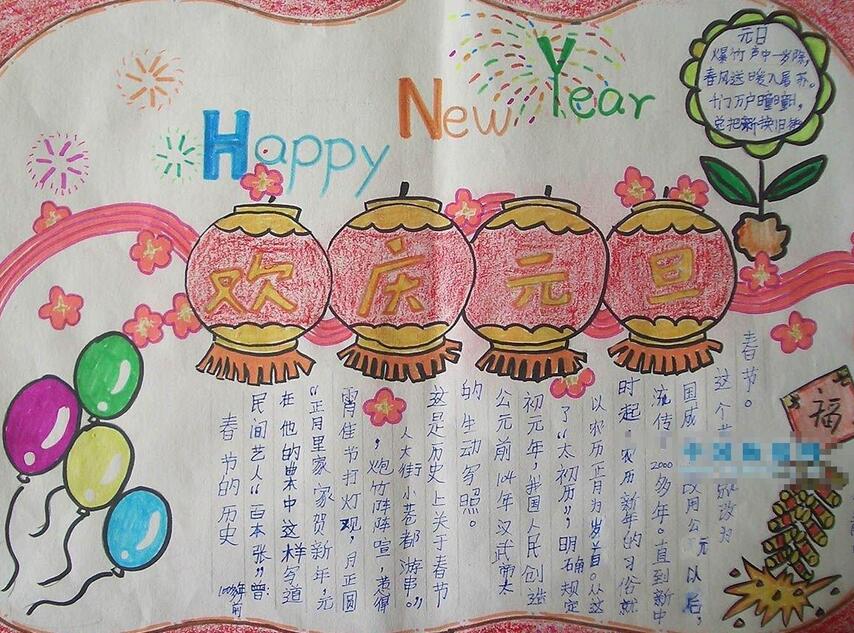 Happy New Year
元日
爆竹声中一岁除,
春风送暖入屠苏。
千门万户曈曈日,
总把新换旧
欢庆元旦
福
春节的历史
100多年前
民间艺人“百本张”曾
在他的曲本中这样写道
“正月里家家贺新年,元
宵佳节打灯观,月正圆
,炮竹阵阵喧,惹得
人人大街小巷都游串。”
这是历史上关于春节
的生动写照。
公元前104年汉武帝太
初元年,我国人民创造
了“太初历”,明确规定
以农历正月为岁首。从这
时起,农历新年的习俗就
流传2000多年。直到新中
国成 改用公元以后,
这个节 改为
春节。